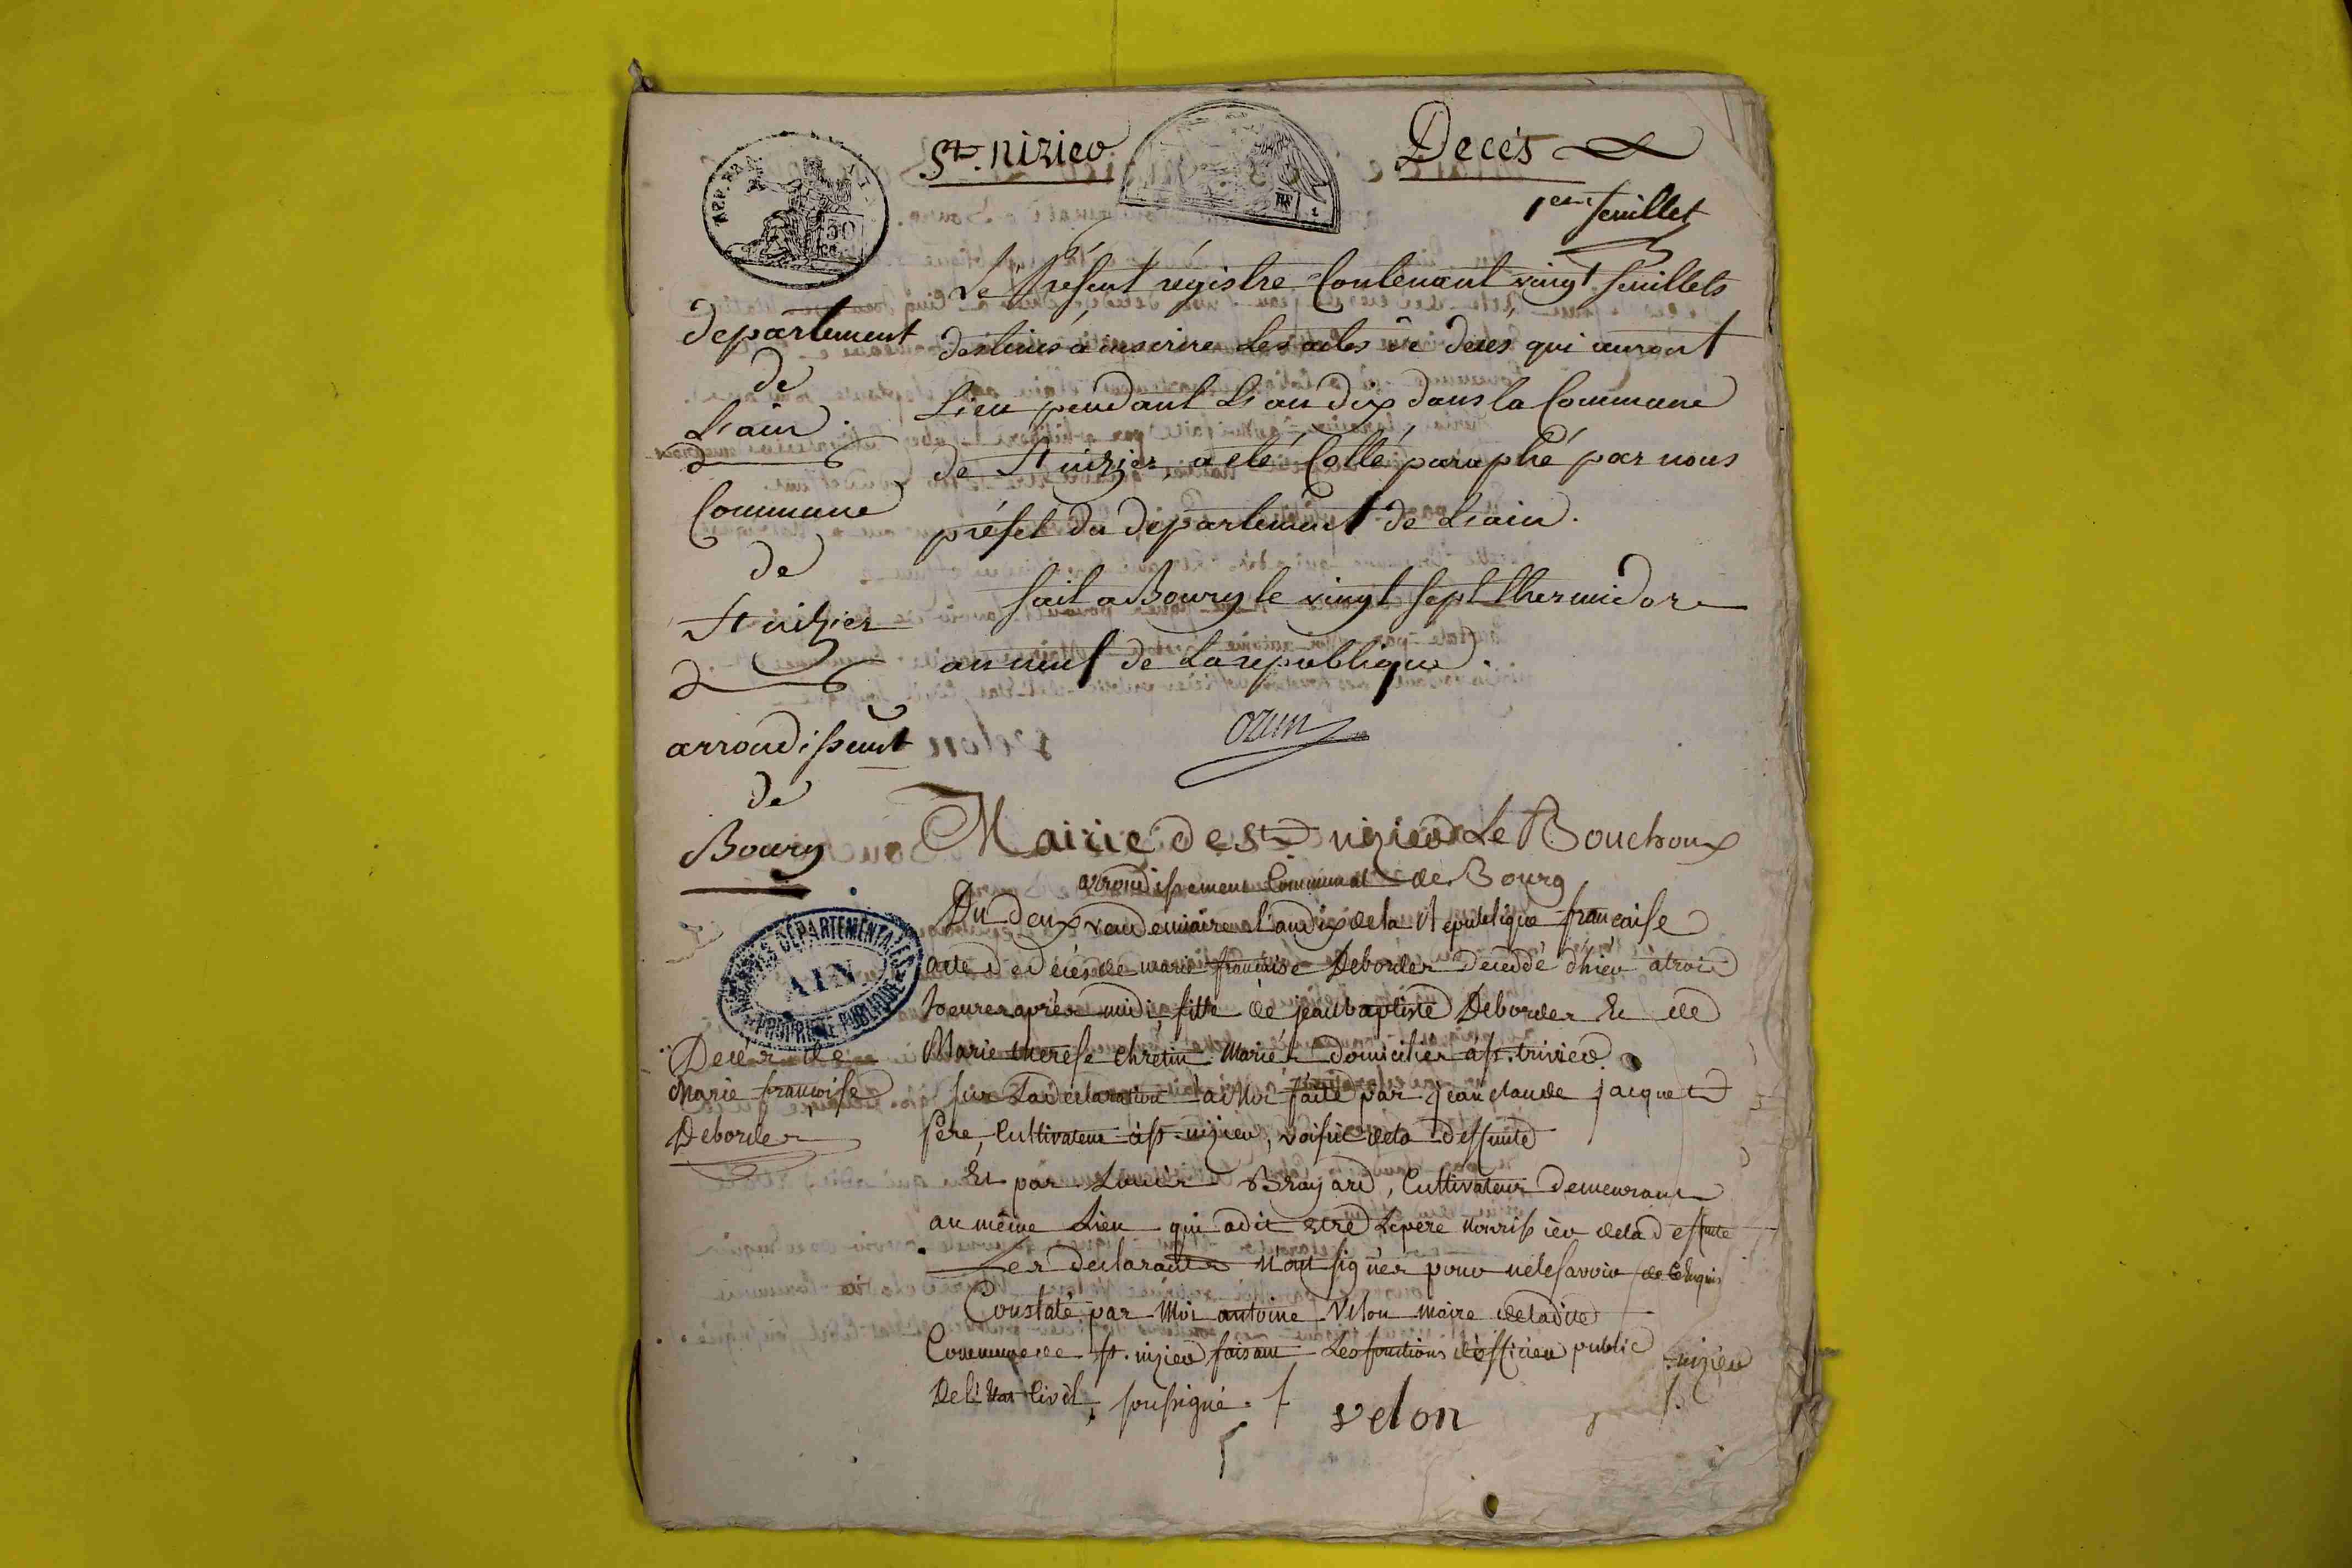 St. nizier
Decés
1er feuillet
REP. FRA
50
RF
Le Présent régistre Contenant vingt feuillets
destinés a inscrire les actes de décés qui auront
Lieu pendant L'an dix dans la Commune
de St nizier, a eté Cotté paraphé par nous
préfet du département de L'ain.
fait a Bourg le vingt sept thermidor
an neuf de La republique.
departement
de
L'ain.
Commune
de
St nizier
arrondissemt
de
Bourg
Mairie de St nizier Le Bouchoux
arrondissement Communal de Bourg
Du deux vendemiaire l'an dix de la République française
acte de décés de marie françoise Deborder décédé d'hier à trois
heures après midi, fille de jean baptiste Deborder Et de
Marie therese chretin Mariés domiciliés à st. trivier
sur La déclaration à Moi faite par jean claude jacquet
père, Cultivateur à st. nizier, voisin de la deffunte
Et par Louis Brayard, Cultivateur demeurant
au même Lieu qui a dit etre Le pere nourissier de la deffunte
Les declarants n'ont signés pour ne le savoir de ce Enquis
Constaté par Moi antoine velon maire de la dite
Commune de st. nizier faisant Les fonctions d'officier public
De l'Etat Civil, soussigné.
velon
nizier
ARCHIVES DÉPARTEMENTALES
AIN
PROPRIÉTÉ PUBLIQUE
Decés de
Marie françoise
Deborder